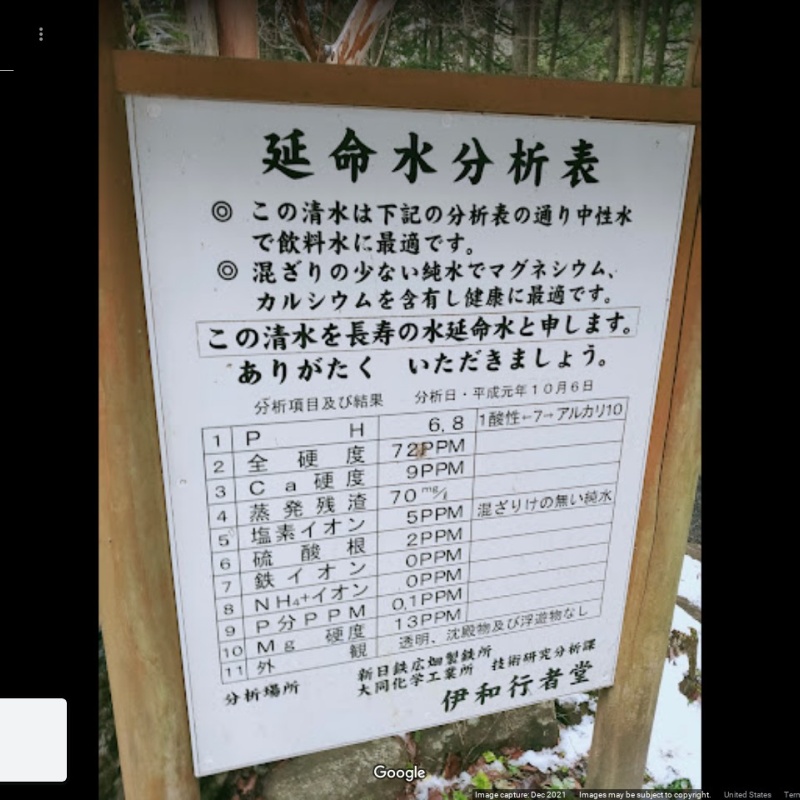 延命水分析表
◎ この清水は下記の分析表の通り中性水
で飲料水に最適です。
◎ 混ざりの少ない純水でマグネシウム、
カルシウムを含有し健康に最適です。
この清水を長寿の水延命水と申します。
ありがたく いただきましょう。
分析項目及び結果 分析日・平成元年10月6日
1 PH 6.8 1酸性←7→アルカリ10
2 全硬度 72PPM
3 Ca硬度 9PPM
4 蒸発残渣 70mg/l
5 塩素イオン 5PPM 混ざりけの無い純水
6 硫酸根 2PPM
7 鉄イオン 0PPM
8 NH4+イオン 0PPM
9 P分PPM 0.1PPM
10 Mg硬度 13PPM
11 外観 透明、沈殿物及び浮遊物なし
分析場所 新日鉄広畑製鉄所
大同化学工業所 技術研究分析課
伊和行者堂
Google
Image capture: Dec 2021 Images may be subject to copyright. United States Term